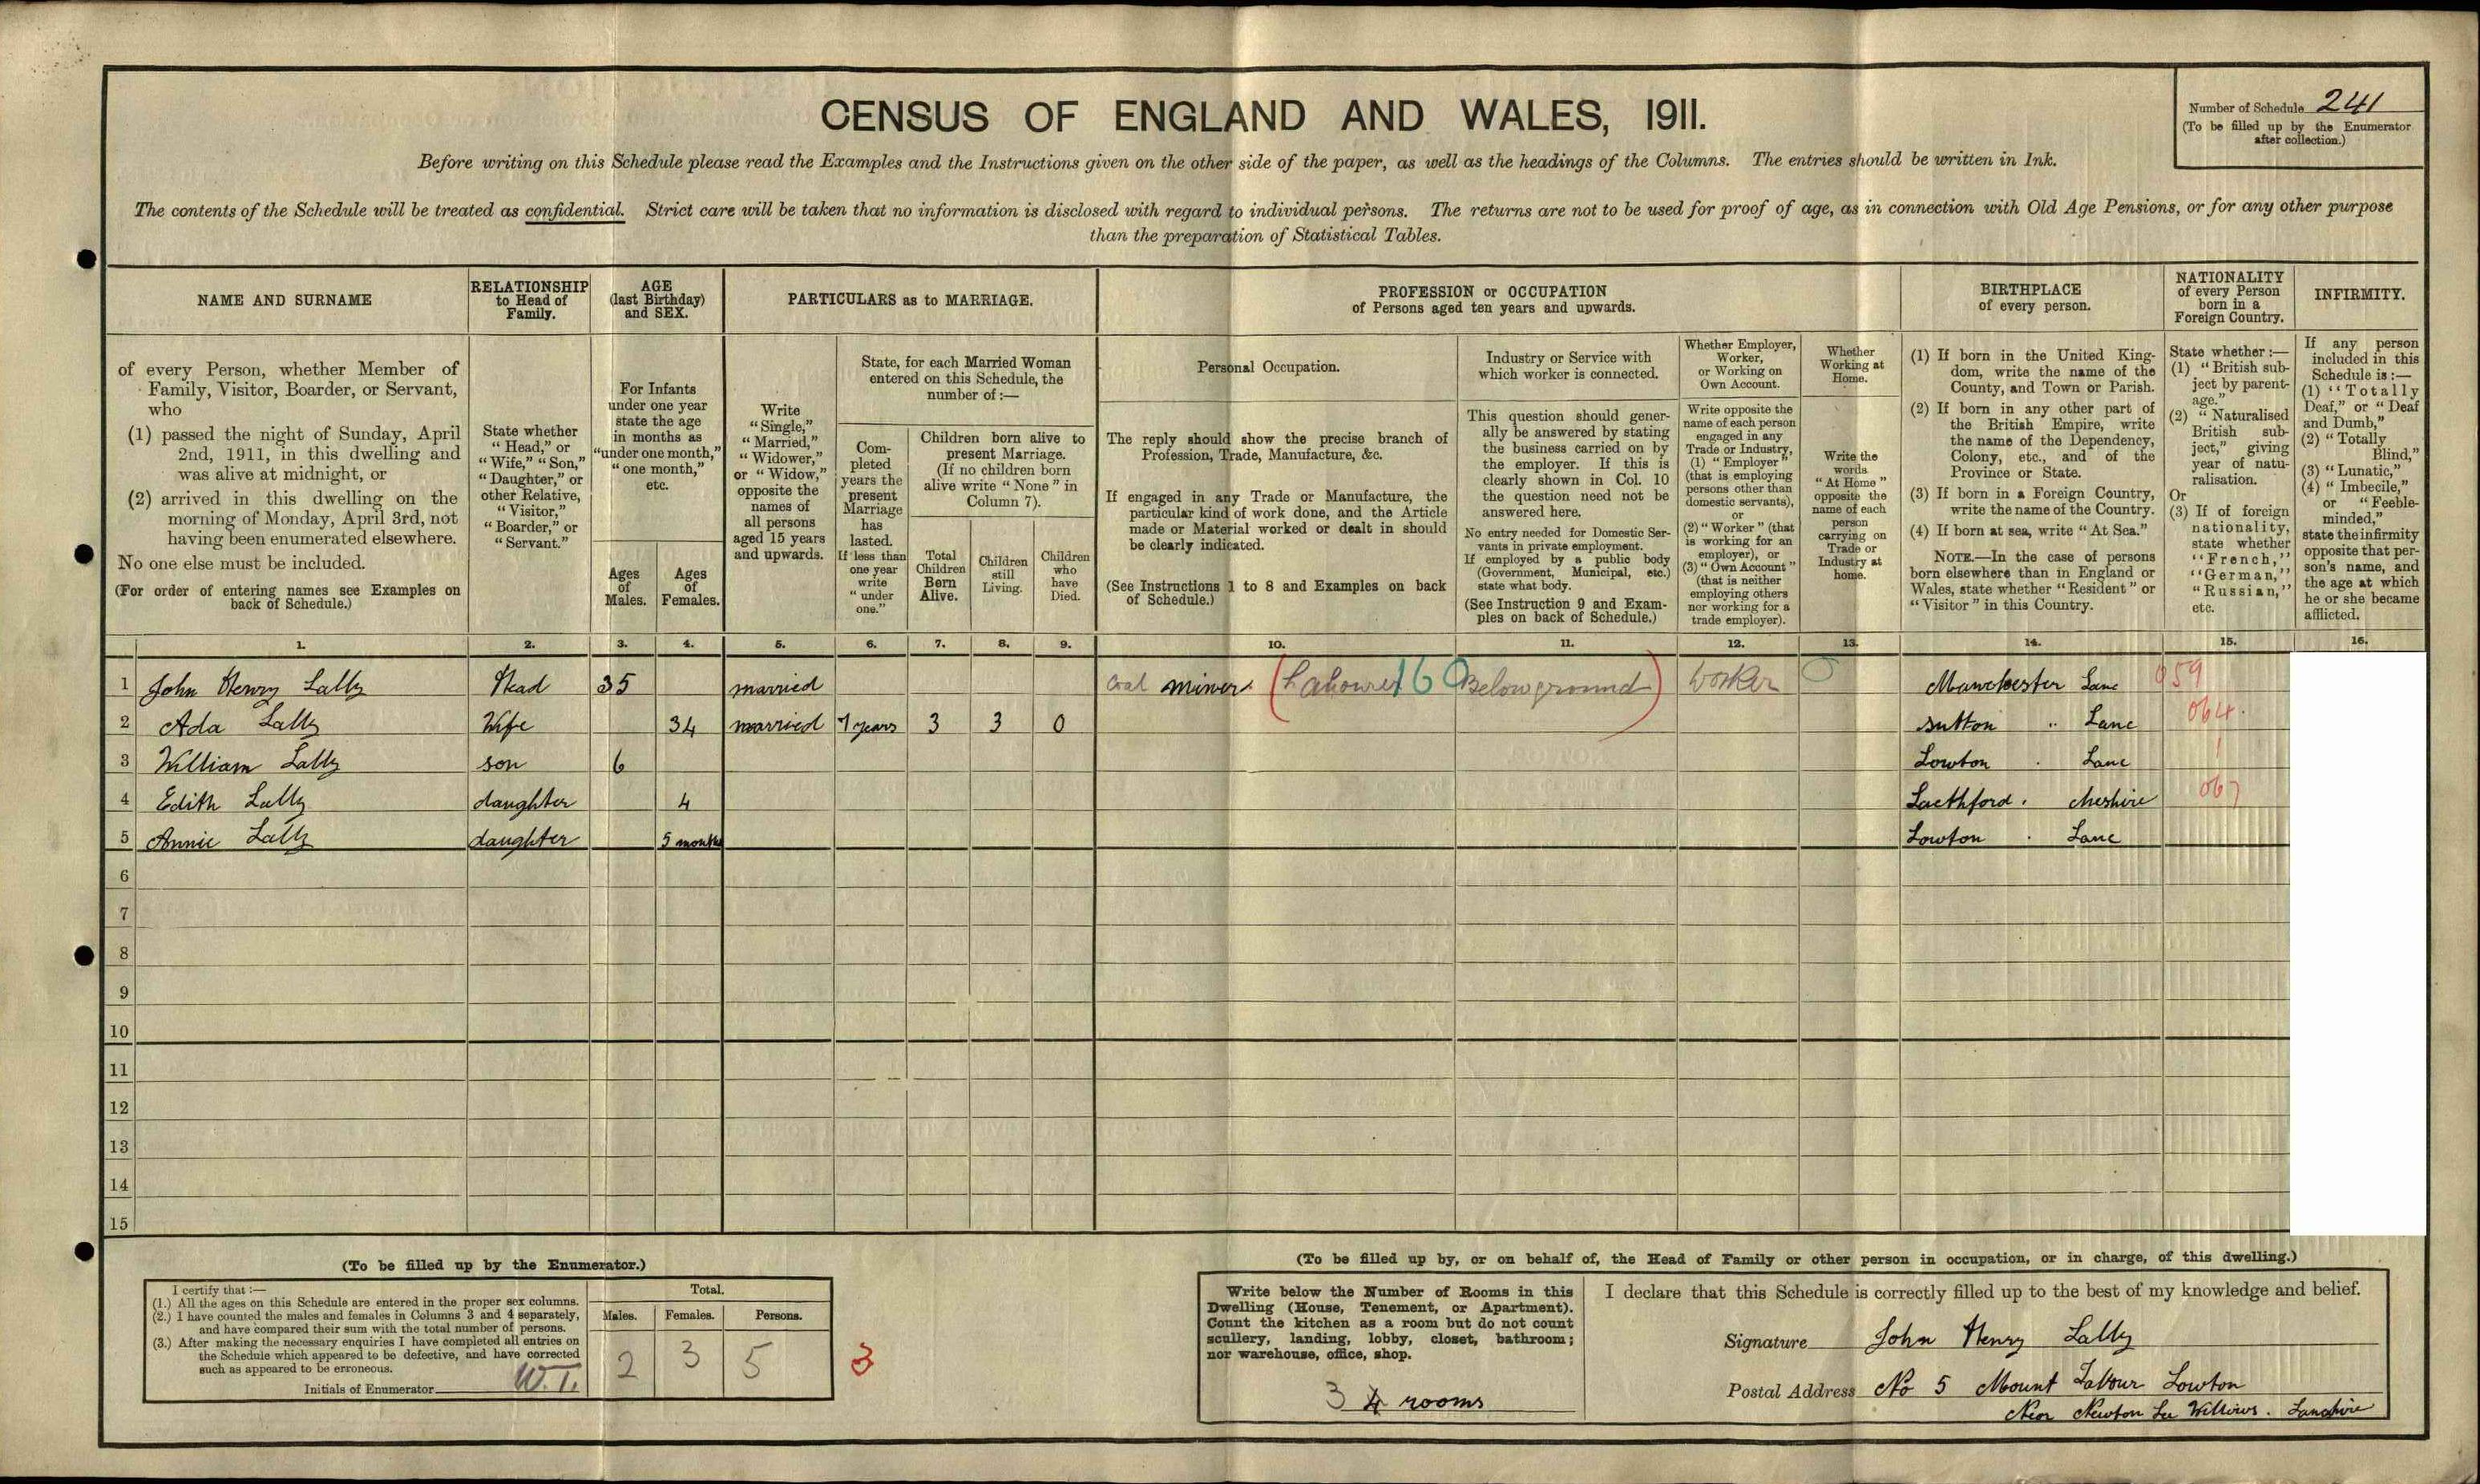 Number of Schedule 241
(To be filled up by the Enumerator
after collection.)
CENSUS OF ENGLAND AND WALES, 1911.
Before writing on this Schedule please read the Examples and the Instructions given on the other side of the paper, as well as the headings of the Columns. The entries should be written in Ink.
The contents of the Schedule will be treated as confidential. Strict care will be taken that no information is disclosed with regard to individual persons. The returns are not to be used for proof of age, as in connection with Old Age Pensions, or for any other purpose
than the preparation of Statistical Tables.
NAME AND SURNAME
of every Person, whether Member of
Family, Visitor, Boarder, or Servant,
who
(1) passed the night of Sunday, April
2nd, 1911, in this dwelling and
was alive at midnight, or
(2) arrived in this dwelling on the
morning of Monday, April 3rd, not
having been enumerated elsewhere.
No one else must be included.
(For order of entering names see Examples on
back of Schedule.)
RELATIONSHIP
to Head of
Family.
State whether
"Head," or
"Wife," "Son,"
"Daughter," or
other Relative,
"Visitor,"
"Boarder," or
"Servant."
AGE
(last Birthday)
and SEX.
For Infants
under one year
state the age
in months as
"under one month,"
"one month,"
etc.
Ages
of
Males.
Ages
of
Females.
PARTICULARS as to MARRIAGE.
Write
"Single,"
"Married,"
"Widower,"
or "Widow,"
opposite the
names of
all persons
aged 15 years
and upwards.
State, for each Married Woman
entered on this Schedule, the
number of:—
Com-
pleted
years the
present
Marriage
has
lasted.
If less than
one year
write
"under
one."
Children born alive to
present Marriage.
(If no children born
alive write "None" in
Column 7).
Total
Children
Born
Alive.
Children
still
Living.
Children
who
have
Died.
PROFESSION or OCCUPATION
of Persons aged ten years and upwards.
Personal Occupation.
The reply should show the precise branch of
Profession, Trade, Manufacture, &c.
If engaged in any Trade or Manufacture, the
particular kind of work done, and the Article
made or Material worked or dealt in should
be clearly indicated.
(See Instructions 1 to 8 and Examples on back
of Schedule.)
Industry or Service with
which worker is connected.
This question should gener-
ally be answered by stating
the business carried on by
the employer. If this is
clearly shown in Col. 10
the question need not be
answered here.
No entry needed for Domestic Ser-
vants in private employment.
If employed by a public body
(Government, Municipal, etc.)
state what body.
(See Instruction 9 and Exam-
ples on back of Schedule.)
Whether Employer,
Worker,
or Working on
Own Account.
Write opposite the
name of each person
engaged in any
Trade or Industry,
(1) "Employer"
(that is employing
persons other than
domestic servants),
or
(2) "Worker" (that
is working for an
employer), or
(3) "Own Account"
(that is neither
employing others
nor working for a
trade employer).
Whether
Working at
Home.
Write the
words
"At Home"
opposite the
name of each
person
carrying on
Trade or
Industry at
home.
BIRTHPLACE
of every person.
(1) If born in the United King-
dom, write the name of the
County, and Town or Parish.
(2) If born in any other part of
the British Empire, write
the name of the Dependency,
Colony, etc., and of the
Province or State.
(3) If born in a Foreign Country,
write the name of the Country.
(4) If born at sea, write "At Sea."
NOTE.—In the case of persons
born elsewhere than in England or
Wales, state whether "Resident" or
"Visitor" in this Country.
NATIONALITY
of every Person
born in a
Foreign Country.
State whether:—
(1) "British sub-
ject by parent-
age."
(2) "Naturalised
British sub-
ject," giving
year of natu-
ralisation.
Or
(3) If of foreign
nationality,
state whether
"French,"
"German,"
"Russian,"
etc.
INFIRMITY.
If any person
included in this
Schedule is:—
(1) "Totally
Deaf," or "Deaf
and Dumb,"
(2) "Totally
Blind,"
(3) "Lunatic,"
(4) "Imbecile,"
or "Feeble-
minded,"
state the infirmity
opposite that per-
son's name, and
the age at which
he or she became
afflicted.
1. 2. 3. 4. 5. 6. 7. 8. 9. 10. 11. 12. 13. 14. 15. 16.
1 John Henry Lally Head 35 married Coal miner (Labourer 160 Below ground) Worker 0 Manchester Lanc 059
2 Ada Lally Wife 34 married 7 years 3 3 0 Sutton " Lanc 064
3 William Lally son 6 Lowton . Lanc 1
4 Edith Lally daughter 4 Lacthford . cheshire 067
5 Annie Lally daughter 5 months Lowton . Lanc
6
7
8
9
10
11
12
13
14
15
(To be filled up by the Enumerator.)
I certify that:—
(1.) All the ages on this Schedule are entered in the proper sex columns.
(2.) I have counted the males and females in Columns 3 and 4 separately,
and have compared their sum with the total number of persons.
(3.) After making the necessary enquiries I have completed all entries on
the Schedule which appeared to be defective, and have corrected
such as appeared to be erroneous.
Initials of Enumerator W.T.
Total.
Males. Females. Persons.
2 3 5
3
(To be filled up by, or on behalf of, the Head of Family or other person in occupation, or in charge, of this dwelling.)
Write below the Number of Rooms in this
Dwelling (House, Tenement, or Apartment).
Count the kitchen as a room but do not count
scullery, landing, lobby, closet, bathroom;
nor warehouse, office, shop.
3 4 rooms
I declare that this Schedule is correctly filled up to the best of my knowledge and belief.
Signature John Henry Lally
Postal Address No 5 Mount Labour Lowton
Near Newton Le Willows . Lancshire